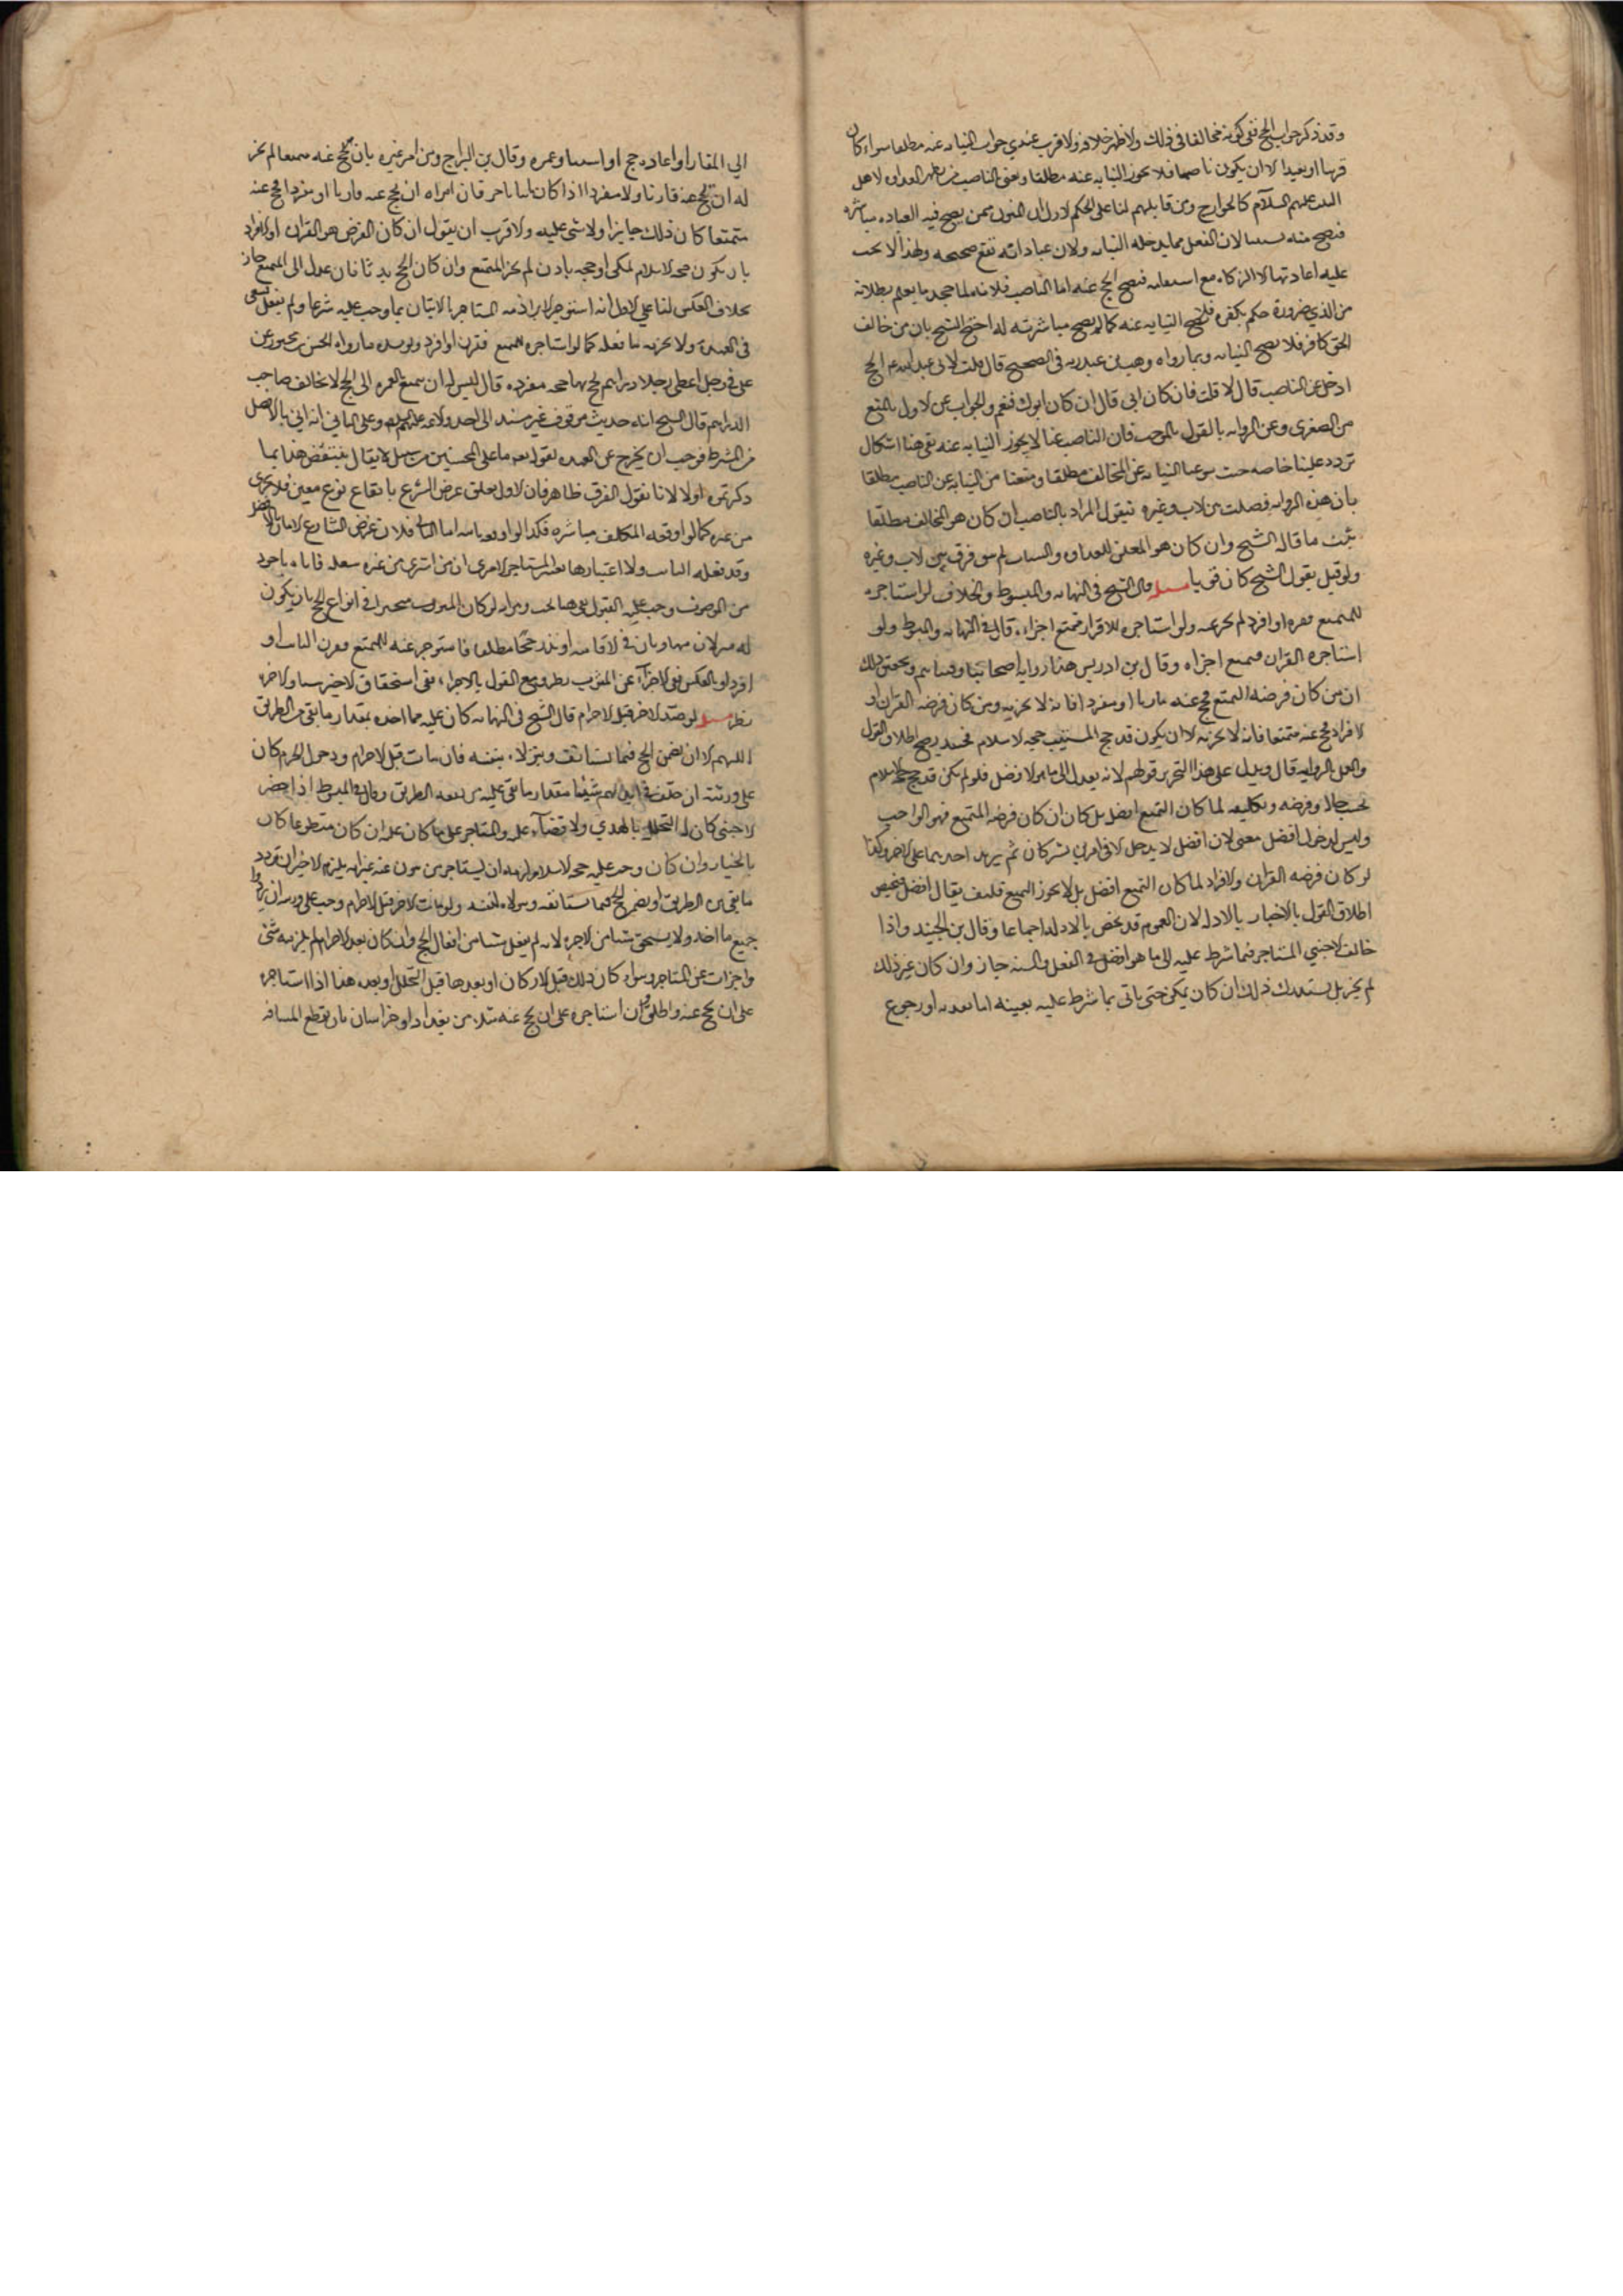 وقد ذكر جواب الحج فنفى كونه مخالفا في ذلك ولا ظهر خلافه والاقرب عندي جواز النيابه عنه مطلقا سواء كان
قريبا او بعيدا الا ان يكون ناصبا فلا يجوز النيابه عنه مطلقا ونعني بالناصب من يظهر العداوه لاهل
البيت عليهم السلام كالخوارج ومن قابلهم لنا على الحكم الاول ان المنوب ممن يصح فيه العباده مباشره
فتصح منه لان الفعل مما يدخله النيابه ولان عباداته تقع صحيحه ولهذا لا يجب
عليه اعادتها الا الزكاه مع فيصح الحج عنه اما الناصب فلانه لما جحد ما يعلم بطلانه
من الدين ضرورة حكم بكفره فلا تصح النيابه عنه كما لم يصح مباشرته له احتج الشيخ بان من خالف
الحق كافر فلا يصح النيابه وبما رواه وهب بن عبد ربه في الصحيح قال قلت لابي عبد الله ع ايحج
الرجل عن الناصب قال لا قلت فان كان ابي قال ان كان ابوك فنعم والجواب عن الاول بالمنع
من الصغرى وعن الروايه بالقول بالموجب فان الناصب عندنا لا يجوز النيابه عنه بقي هنا اشكال
تردد علينا خاصه حيث سوغنا النيابه عن المخالف مطلقا ومنعنا من النيابه عن الناصب مطلقا
بان هذه الروايه فصلت بين الاب وغيره فنقول المراد بالناصب ان كان هو المخالف مطلقا
ثبت ما قاله الشيخ وان كان هو المعلن للعداوه والشنان لم يبق فرق بين الاب وغيره
ولو قيل بقول الشيخ كان قويا مسله قال الشيخ في النهايه والمبسوط والخلاف لو استاجره
للتمتع فقرن او افرد لم يجز عنه ولو استاجره للافراد فتمتع اجزاه قال في النهايه والمبسوط ولو
استاجره للقران فتمتع اجزاه وقال بن ادريس هذا روايه اصحابنا وفتياهم وتحقيق ذلك
ان من كان فرضه التمتع فحج عنه قارنا او مفردا فانه لا يجزيه ومن كان فرضه القران او
الافراد فحج عنه متمتعا فانه لا يجزيه الا ان يكون قد حج المستنيب حجه الاسلام فحينئذ يصح اطلاق القول
والعمل بالروايه قال ويدل على هذا التحرير قولهم لانه يعدل الى ما هو الافضل فلو لم يكن قد حج حجه الاسلام
بحسب حاله وفرضه وتكليفه لما كان التمتع افضل بل كان ان كان فرضه التمتع فهو الواجب
وليس لدخول افضل معنى لان افضل لا يدخل الا في امرين يشتركان ثم يزيد احدهما على الاخر وكذا
لو كان فرضه القران والافراد لما كان التمتع افضل بل لا يجوز التمتع فكيف يقال افضل فيخص
اطلاق القول بالاخبار بالادله لان العموم قد يخص بالادله اجماعا وقال بن الجنيد واذا
خالف الاجنبي المستاجر فيما شرط عليه الى ما هو افضل في الفعل والسنه جاز وان كان غير ذلك
لم يجز بل يستدرك ذلك ان كان يمكن حتى ياتي بما شرط عليه بعينه اما او رجوع
الي الميقات او اعاده حج او وعمره وقال بن البراج ومن امر غيره بان يحج عنه متمتعا لم يجز
له ان يحج عنه قارنا ولا مفردا اذا كان فان امراه ان يحج عنه قارنا او مفردا فحج عنه
متمتعا كان ذلك جايزا ولا شي عليه والاقرب ان يقول ان كان الفرض هو القران او الافراد
بان يكون حجه الاسلام لمكي او حجه بنذر لم يجز التمتع وان كان الحج فان عدل الى التمتع جاز
بخلاف العكس لنا على الاول انه استوجر لابراء ذمه المستاجر بالاتيان بما وجب عليه شرعا ولم يفعل فيبقى
في العهده ولا يجزيه ما فعله كما لو استاجره للتمتع فقرن او افرد ويويده ما رواه الحسن بن محبوب عن
علي في رجل اعطى رجلا دراهم يحج بها حجه مفرده قال ليس له ان يتمتع بالعمره الى الحج لا يخالف صاحب
الدراهم قال الشيخ انه حديث موقوف غير مسند الى احد الائمه عليهم السلام وعلى الثاني انه اتي بالافضل
من الشرط فوجب ان يخرج عن العهده لقوله تع ما على المحسنين من سبيل لا يقال ينتقض هذا بما
ذكرتموه اولا لانا نقول الفرق ظاهر فان الاول يعلق غرض الشرع بايقاع نوع معين فلا يجزي
من غيره كما لو اوقعه المكلف مباشره فكذا لو اوقعه اما الثاني فلان غرض الشارع الاتيان بالافضل
وقد فعله النايب ولا اعتبار بما المستاجر الا ترى ان من اشترى من غيره فاتاه باجود
من الموصوف وجب عليه القبول له لو كان المنوب مخيرا في انواع الحج بان يكون
له منزلان في الاقامه او نذر حجا مطلقا فاستوجر عنه للتمتع فقرن النايب او
افرد او بالعكس ففي الاجزاء عن المنوب نظر ومع القول بالاجزاء ففي استحقاق الاجير والاجره
نظر مسله لو صد الاجير قبل الاحرام قال الشيخ في النهايه كان عليه مما اخذه بمقدار ما بقي من الطريق
اللهم الا ان يضمن الحج فيما يستانف ويتولاه بنفسه فان مات قبل الاحرام ودخول الحرم كان
على ورثته ان خلف في ايديهم شيئا مقدار ما بقي عليه من الطريق وقال في المبسوط اذا احصر
الاجنبي كان له التحلل بالهدي ولا قضاء عليه والمستاجر على ما كان عليه ان كان متطوعا كان
بالخيار وان كان وجب عليه حجه الاسلام لزمه ان يستاجر من ينوب عنه غير انه يلزم الاجير ان يرد
ما بقي من الطريق او يضمن الحج فيما يستانفه ويتولاه بنفسه ولو مات الاجير قبل الاحرام وجب على ورثته ان يردوا
جميع ما اخذ ولا يستحق شيا من الاجره لانه لم يفعل شيا من افعال الحج وان كان بعد الاحرام لم يلزمه شي
واجزات عن المستاجر وسواء كان ذلك قبل الاركان او بعدها قبل التحلل او بعده هذا اذا استاجره
على ان يحج عنه واطلق فان استاجره على ان يحج عنه مثلا من بغداد او خراسان بان يقطع المسافه